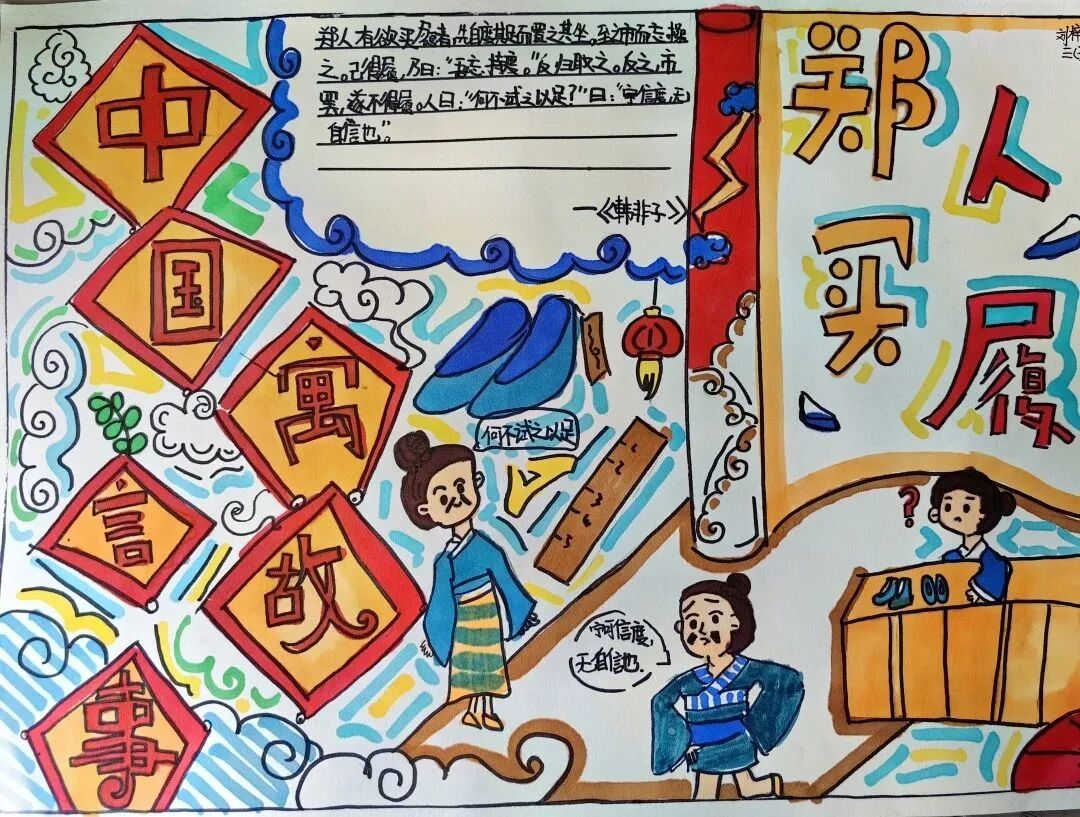 中
国
寓
言
故
事
郑人有欲买履者,先自度其足而置之其坐。至之市而忘操
之。已得履,乃曰:“吾忘持度。”反归取之。反之,市
罢,遂不得履。人曰:“何不试之以足?”曰:“宁信度,无
自信也”。
—《韩非子》
郑人
买履
何不试之以足
宁可信度,
无自信也.
?